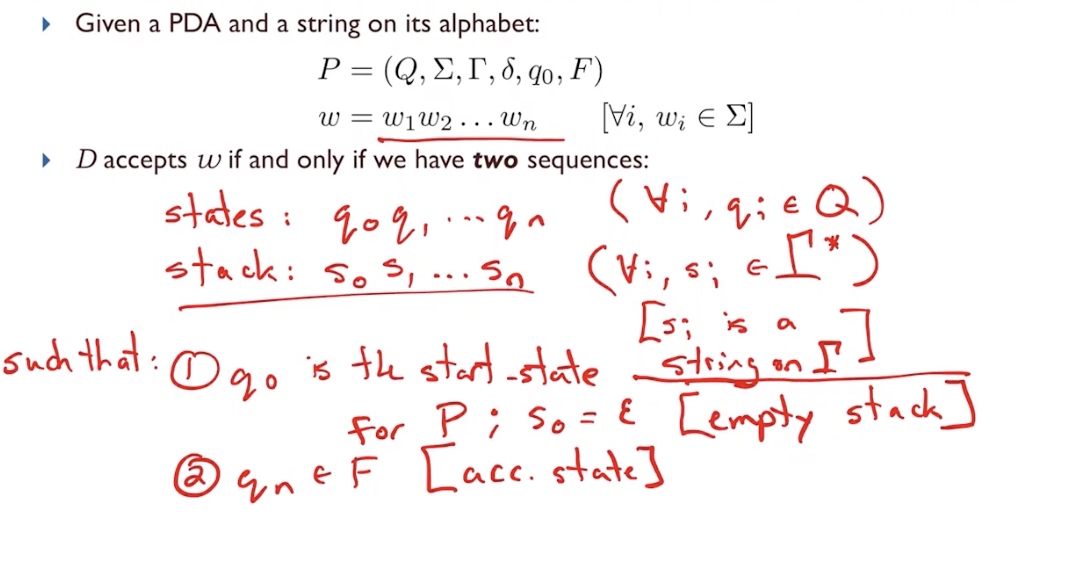 ▸ Given a PDA and a string on its alphabet:
P = (Q, Σ, Γ, δ, q₀, F)
w = w₁w₂ … wₙ [∀i, wᵢ ∈ Σ]
▸ D accepts w if and only if we have two sequences:
states : q₀ q₁ ... qₙ (∀i, qᵢ ∈ Q)
stack : s₀ s₁ ... sₙ (∀i, sᵢ ∈ Γ*)
[sᵢ is a string on Γ]
such that : ① q₀ is the start-state
for P ; s₀ = ε [empty stack]
② qₙ ∈ F [acc. state]